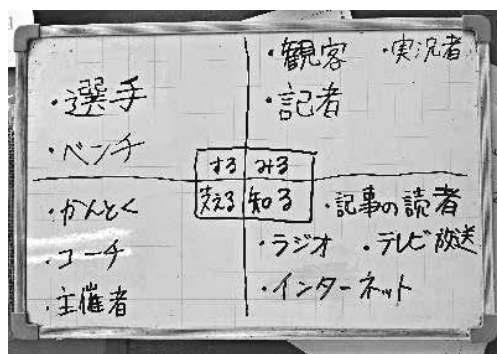 ・選手
・ベンチ
・観客 ・実況者
・記者
する みる
支える 知る
・かんとく
・コーチ
・主催者
・記事の読者
・ラジオ ・テレビ放送
・インターネット